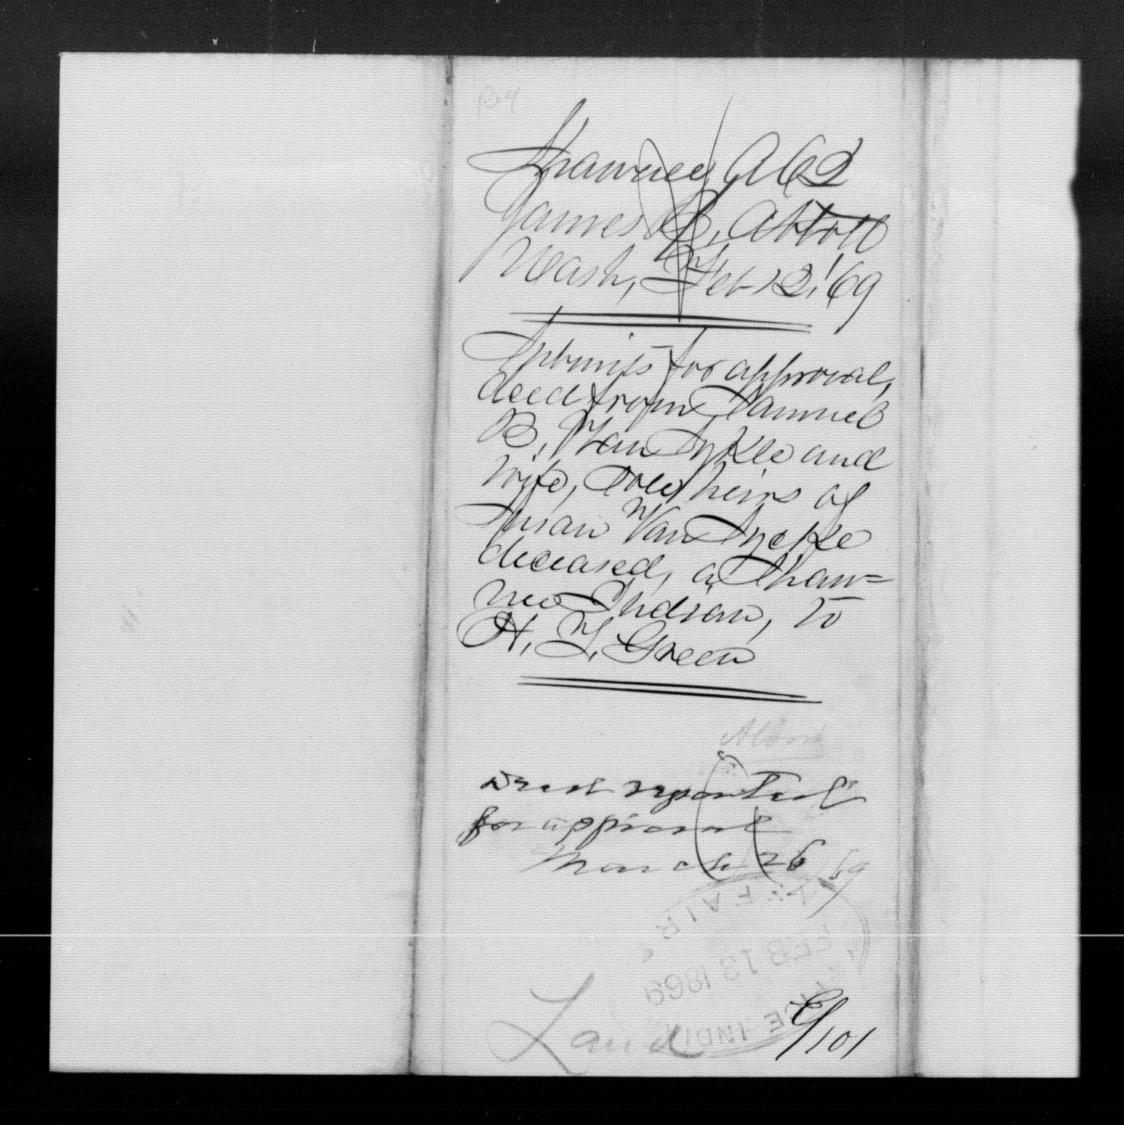 Shawnee A 62
James B. Abbott
Wash, Feb 12, '69
Submits for approval,
deed from Samuel
B. Van Syckle and
wife, sole heirs of
Susan Van Syckle
deceased, a Shaw=
nee Indian, to
H. T. Green
Deed reported
for approval
March 26 69
AFFAIRS
FEB 13 1869
OFFICE INDIAN
Land
6/101